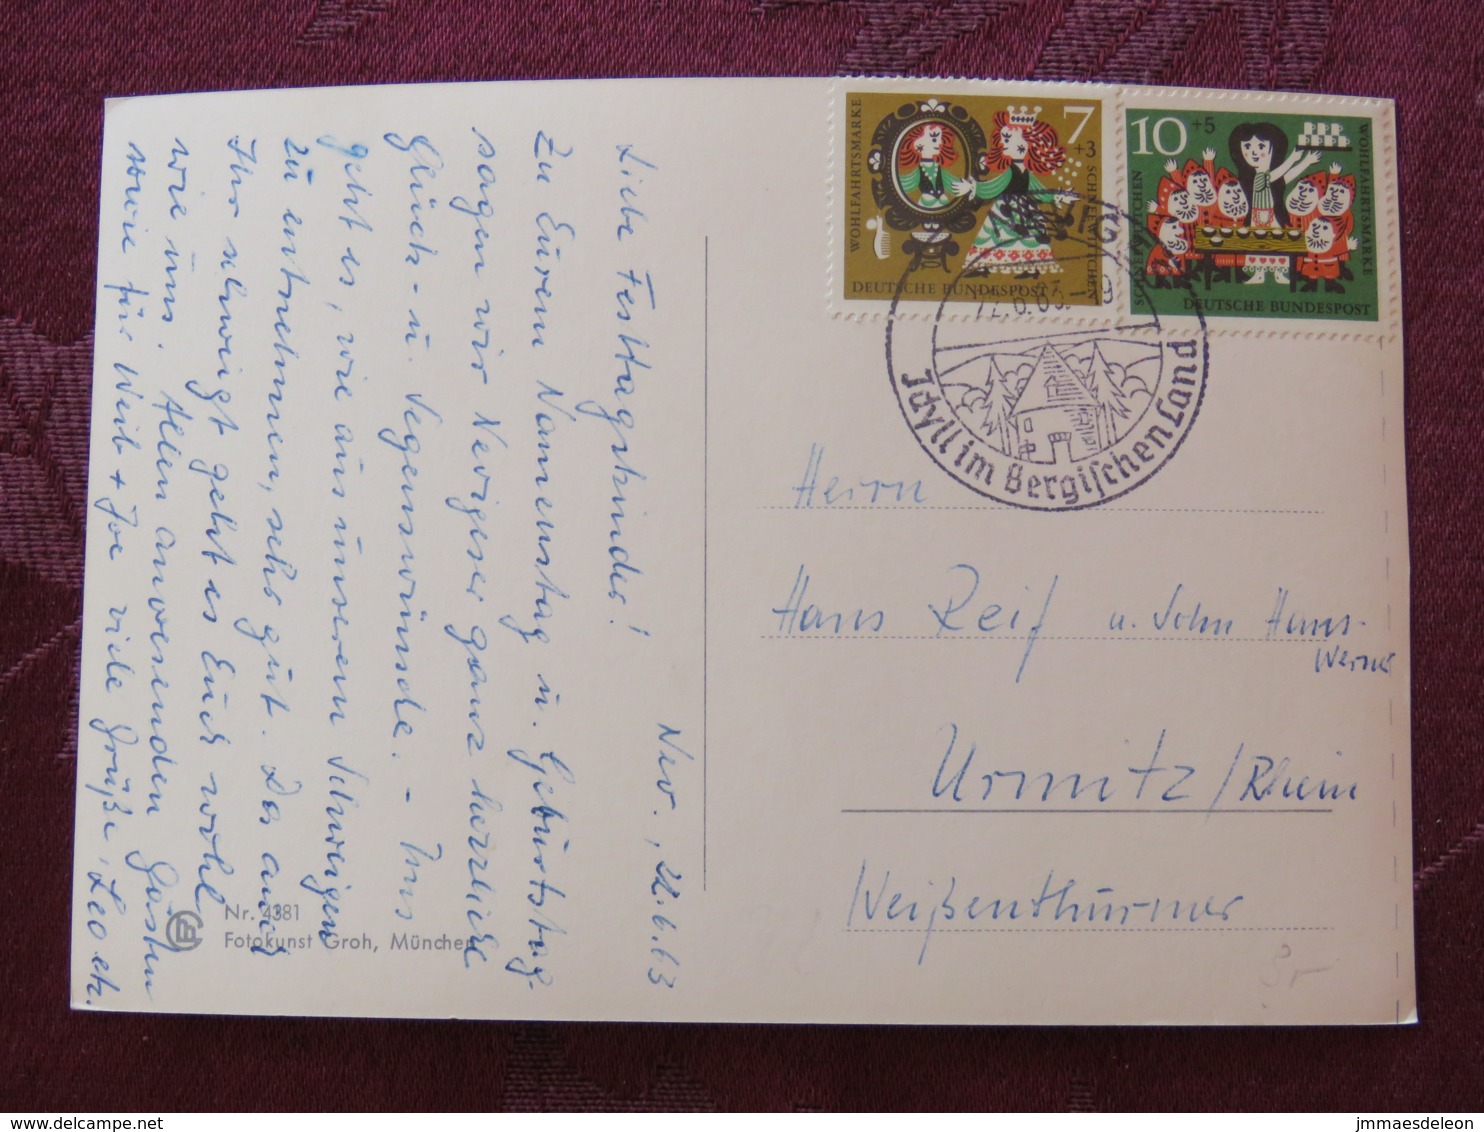 Nev., 22.6.63
Liebe Festtagskinder!
Zu Eurem Namenstag u. Geburtstag
sagen wir Nevigeser ganz herzliche
Glück- u. Segenswünsche. - Uns
geht es, wie aus unserem Schweigen
zu entnehmen, sehr gut. Da auch
Ihr schweigt geht es Euch wohl
wie uns. Allen anwesenden Gästen
sowie für Weib + Joe viele Grüße, Leo etc.
Nr. 4381
Fotokunst Groh, München
WOHLFAHRTSMARKE
7
+3
SCHNEEWITTCHEN
DEUTSCHE BUNDESPOST
10
+5
WOHLFAHRTSMARKE
SCHNEEWITTCHEN
DEUTSCHE BUNDESPOST
Idyll im Bergischen Land
Herrn
Hans Reif u. Sohn Hans-
Werner
Urmitz/Rhein
Weißenthurmer
jmmaesdeleon
delcampe.net
jmmaesdeleon